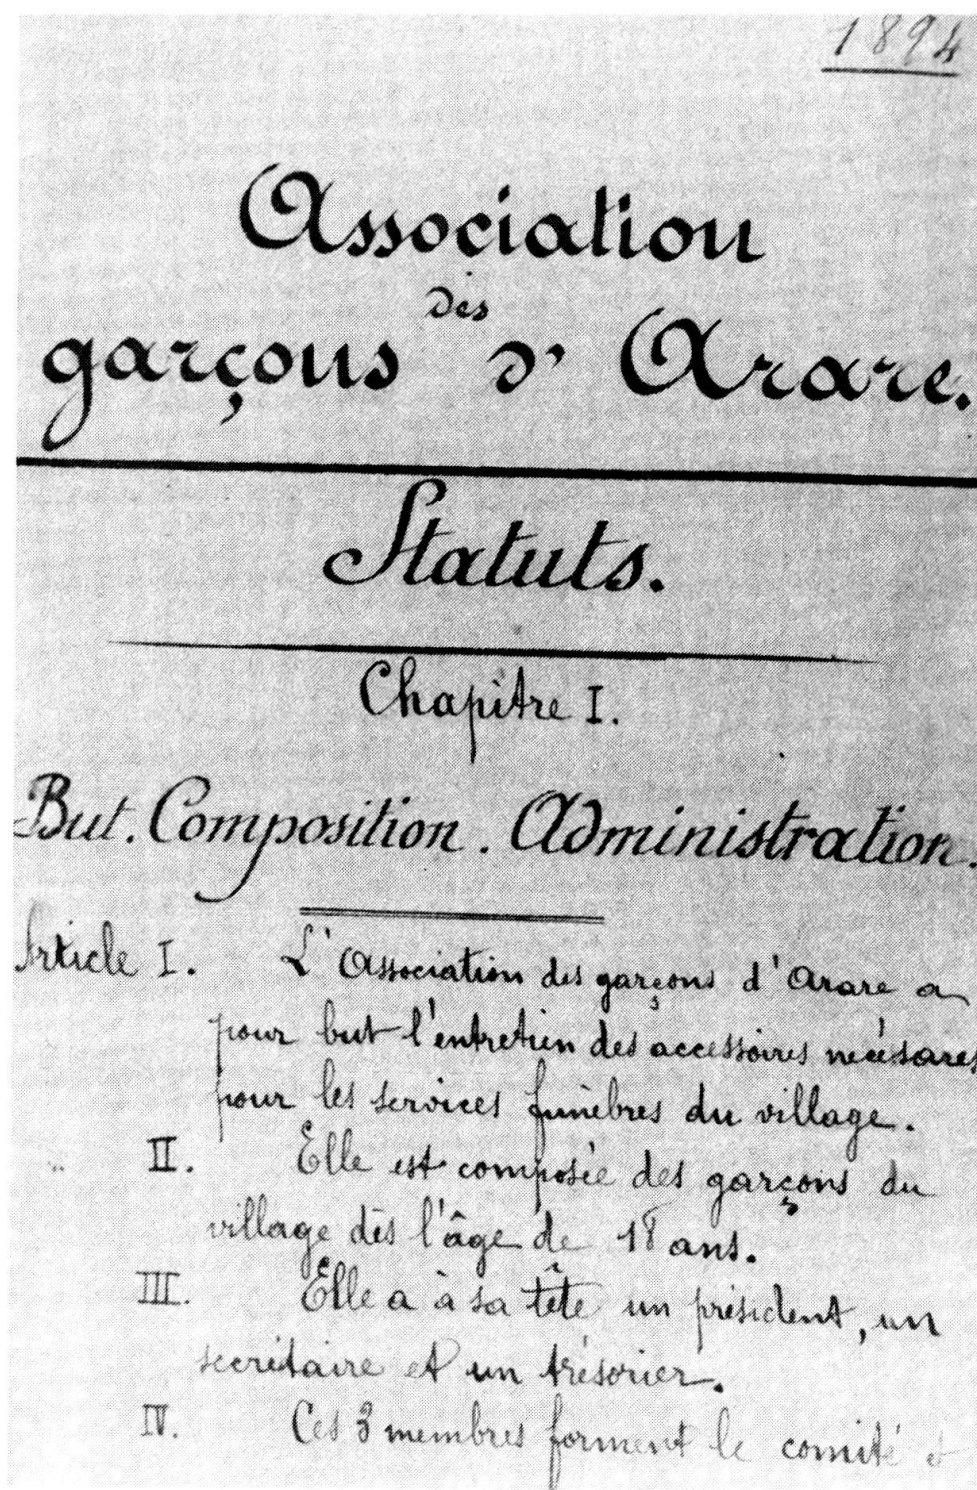 1894
Association
des
garçons d'Arare.
Statuts.
Chapitre I.
But. Composition. Administration.
Article I. L'Association des garçons d'Arare a
pour but l'entretien des accessoires nécessares
pour les services funèbres du village.
" II. Elle est composée des garçons du
village dès l'âge de 18 ans.
III. Elle a à sa tête un président, un
secrétaire et un trésorier.
IV. Ces 3 membres forment le comité et